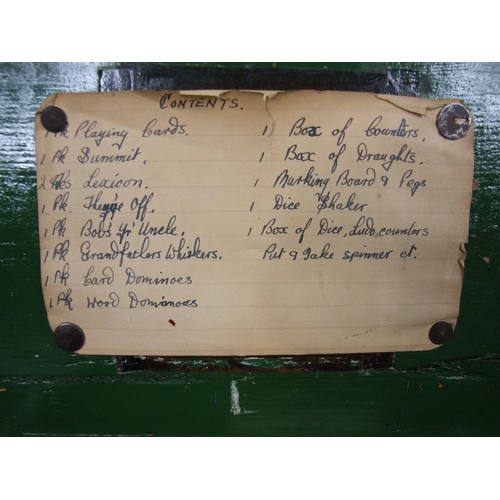 CONTENTS.
1 Pk Playing Cards.
1 Pk Summit.
2 Pks Lexicon.
1 Pk. Off.
1 Pk. Bob's Yr Uncle.
1 Pk Grandfathers Whiskers.
1 Pk Card Dominoes
1 Pk Wood Dominoes
1 Box of Counters.
1 Box of Draughts.
1 Marking Board & Pegs
1 Dice Shaker
1 Box of Dice, Ludo counters
Put & Take spinner et.